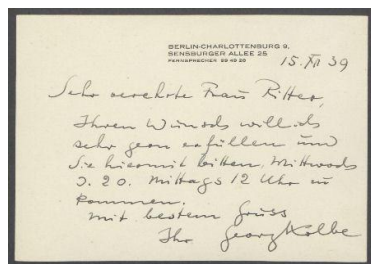 BERLIN-CHARLOTTENBURG 9,
SENSBURGER ALLEE 25
FERNSPRECHER 99 49 20
15. XII 39
Sehr verehrte Frau Ritter,
Ihren Wunsch will ich
sehr gern erfüllen und
Sie hiermit bitten, Mittwoch
d. 20. Mittags 12 Uhr zu
kommen.
Mit bestem Gruss
Ihr Georg Kolbe